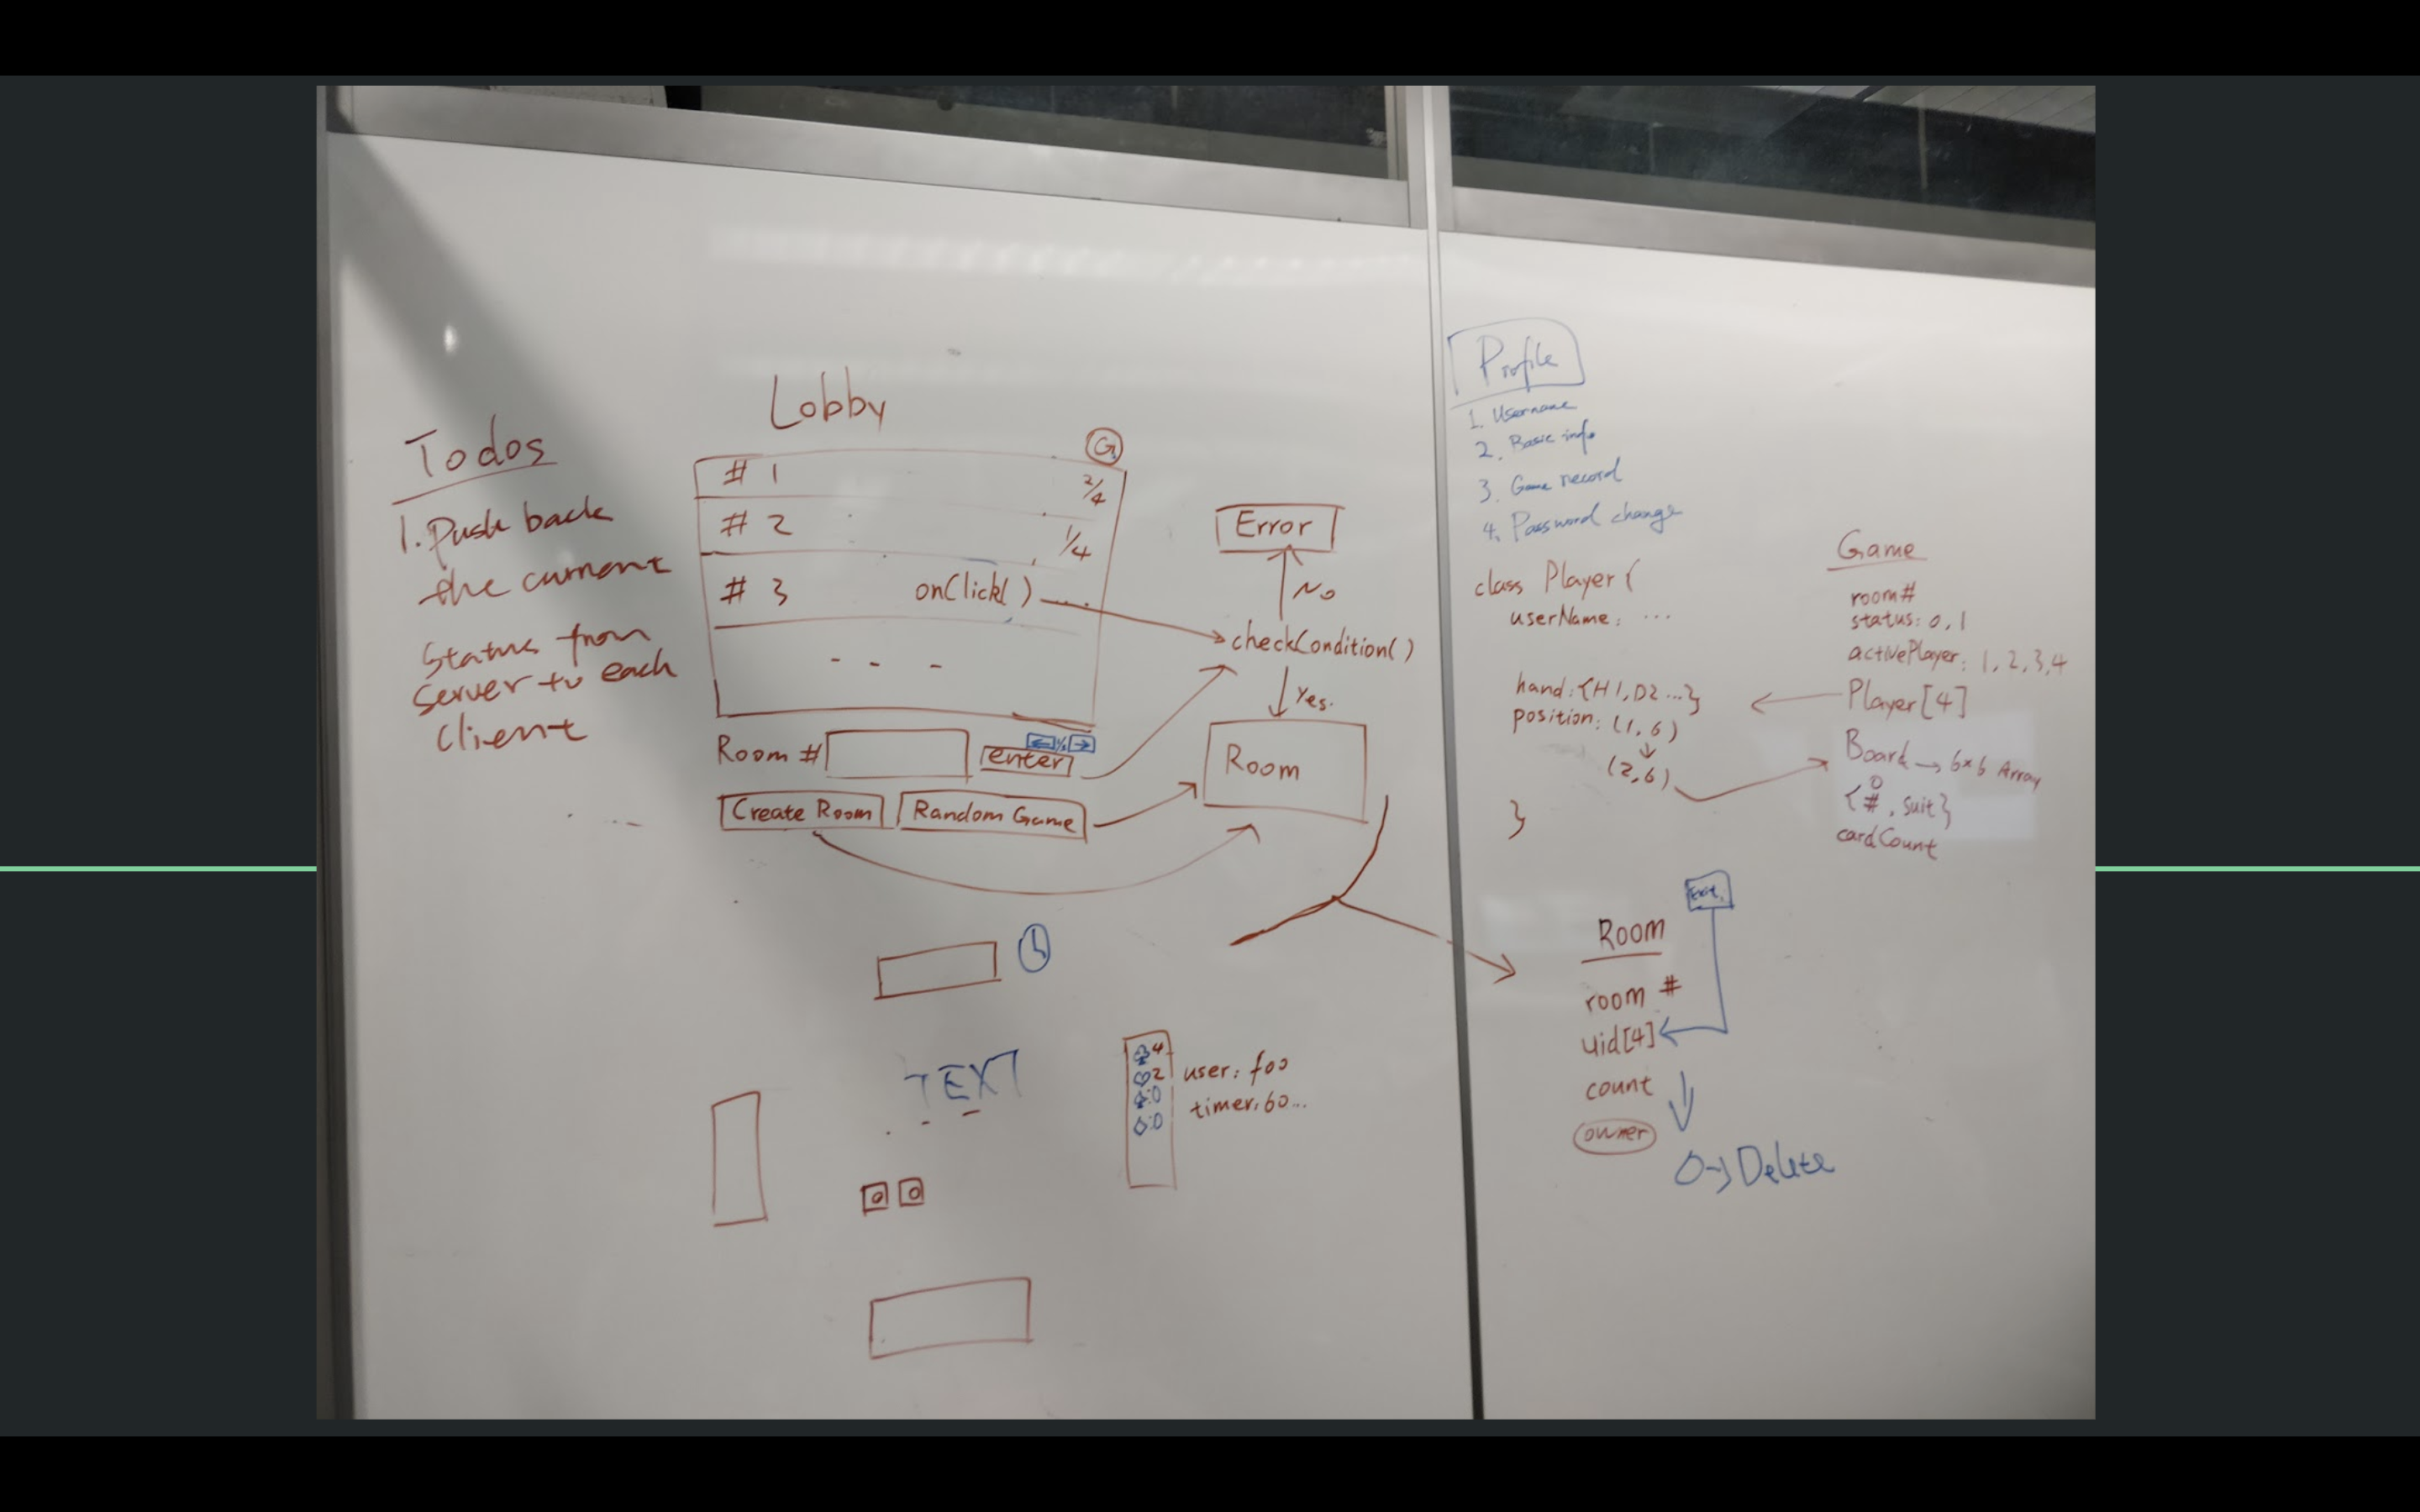 Todos
1. Push back
the current
Status from
server to each
client
Lobby
G
# 1 2/4
# 2 1/4
# 3 onClick()
- - -
Room # enter ← →
Create Room Random Game
Error
No
checkCondition()
Yes.
Room
TEXT
♣4
♡2
♠:0
◇:0
user: foo
timer: 60...
Profile
1. Username
2. Basic info
3. Game record
4. Password change
class Player {
userName: ...
hand: {H1, D2 ...}
position: (1, 6)
↓
(2, 6)
}
Game
room#
status: 0, 1
activePlayer: 1, 2, 3, 4
Player[4]
Board → 6×6 Array
0
{#, suit}
cardCount
Exit.
Room
room #
uid[4]
count
owner
0→Delete